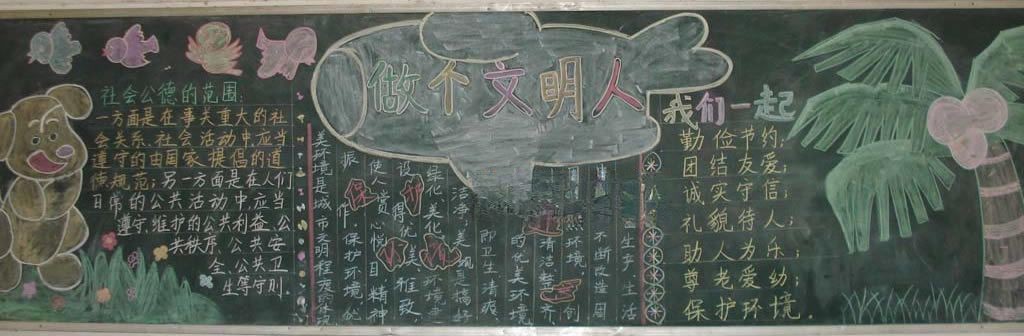 做个文明人
社会公德的范围:
一方面是在事关重大的社
会关系、社会活动中应当
遵守的由国家提倡的道
德规范;另一方面是在人们
日常的公共活动中应当
遵守、维护的公共利益、公
共秩序、公共安
全、公共卫
生等守则
生乎生活
不断改造周
环境,创
清洁整齐
的优美环境
即卫生清爽
洁净、美观是搞好
绿化美化环境
设得优美、雅致
使人赏心悦目精神
振作,保护环境优
美环境是城市文明程度的
我们一起
勤俭节约;
团结友爱;
诚实守信;
礼貌待人;
助人为乐;
尊老爱幼;
保护环境.